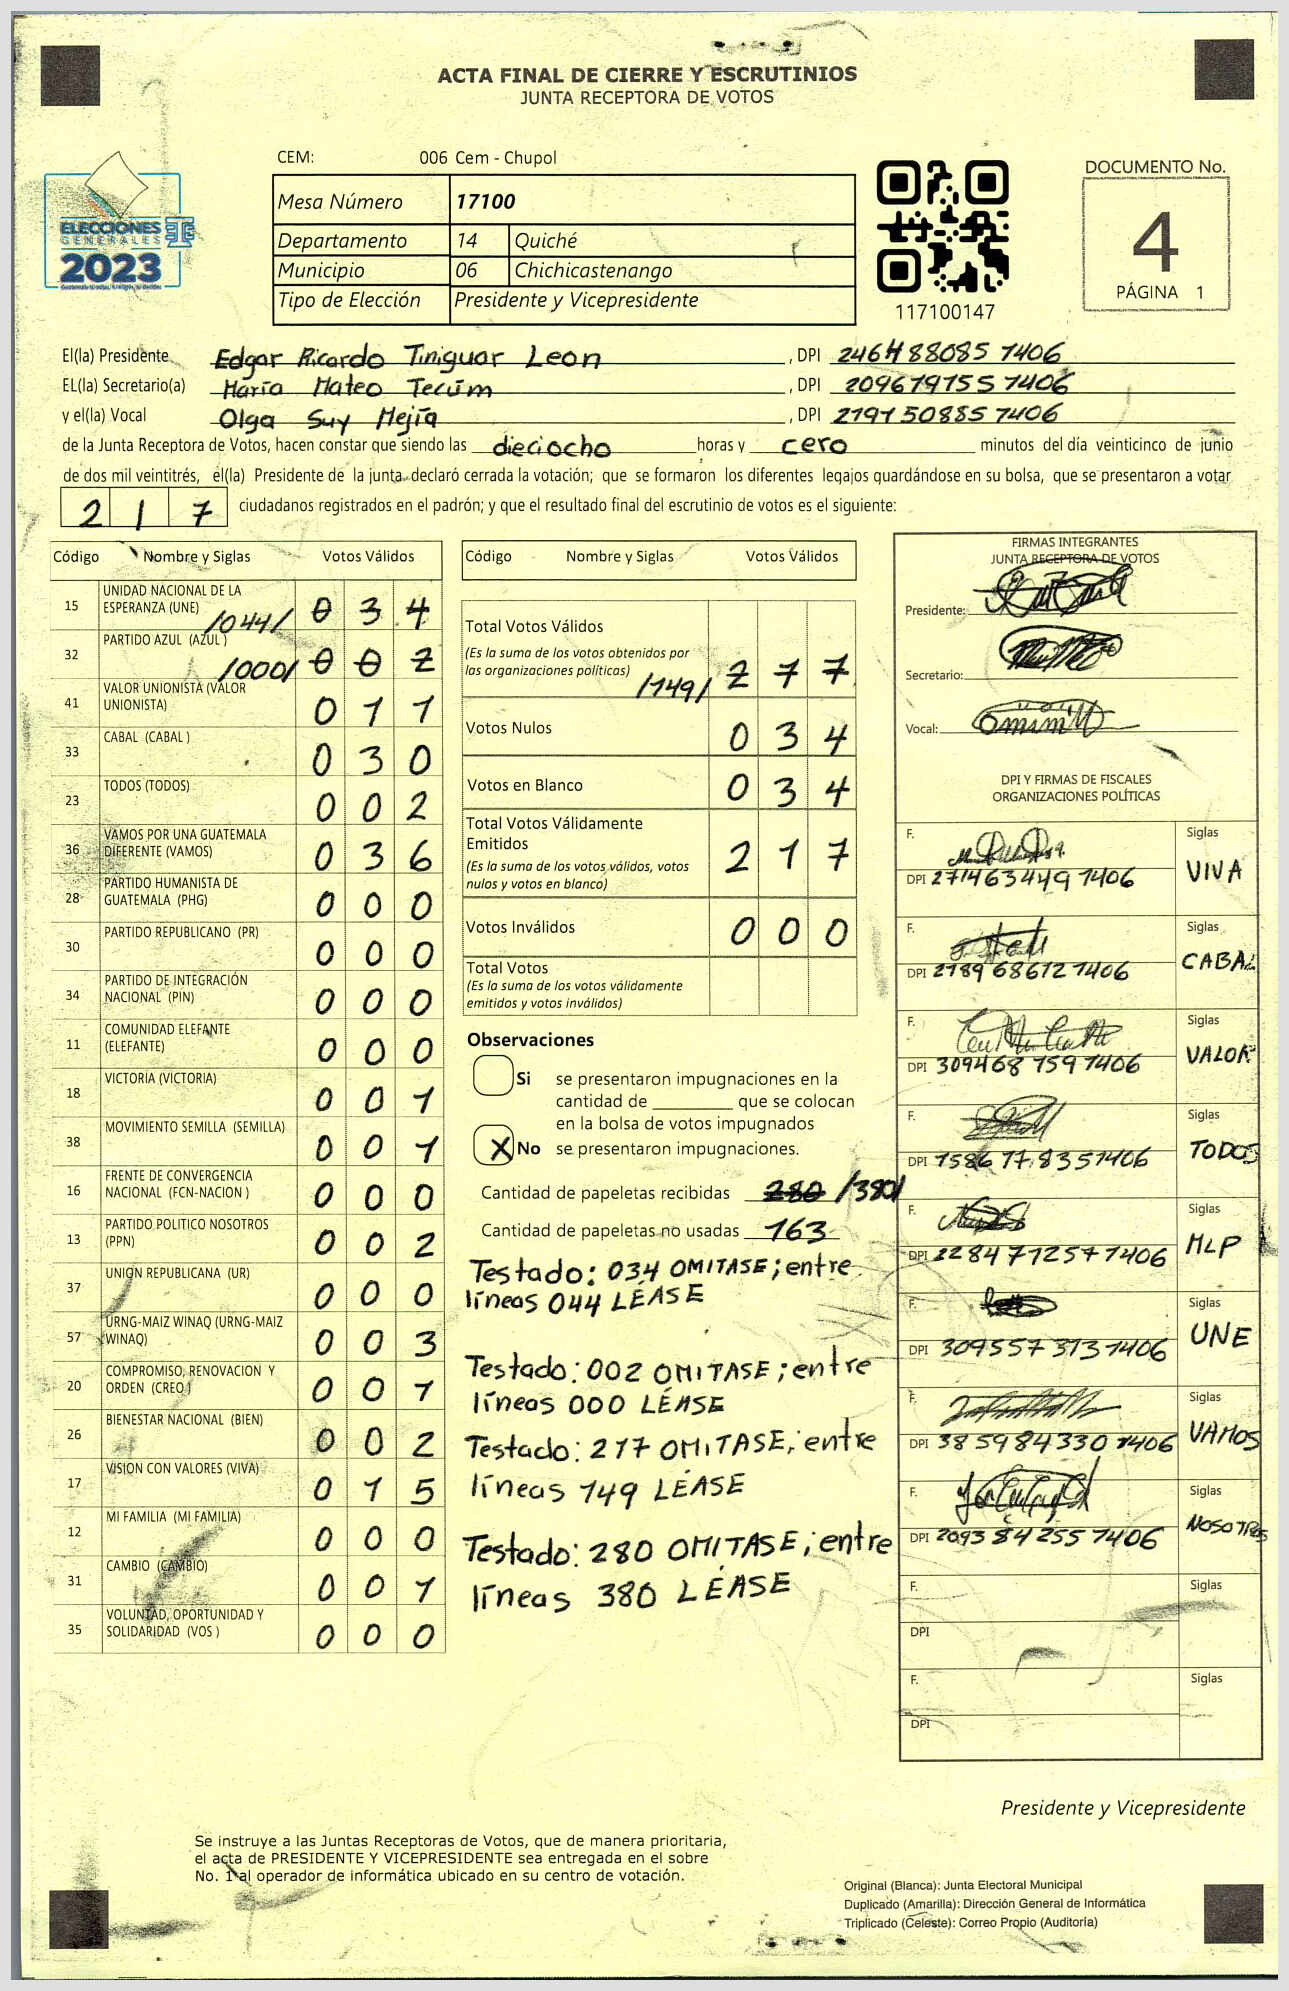 ACTA FINAL DE CIERRE Y ESCRUTINIOS
JUNTA RECEPTORA DE VOTOS
CEM: 006 Cem - Chupol
Mesa Número 17100
Departamento 14 Quiché
Municipio 06 Chichicastenango
Tipo de Elección Presidente y Vicepresidente
ELECCIONES
GENERALES
2023
117100147
DOCUMENTO No.
4
PÁGINA 1
El(la) Presidente Edgar Ricardo Tiniguar Leon , DPI 2464 88085 1406
EL(la) Secretario(a) María Mateo Tecúm , DPI 2096 79755 1406
y el(la) Vocal Olga Suy Mejía , DPI 2797 50885 1406
de la Junta Receptora de Votos, hacen constar que siendo las dieciocho horas y cero minutos del día veinticinco de junio
de dos mil veintitrés, el(la) Presidente de la junta declaró cerrada la votación; que se formaron los diferentes legajos guardándose en su bolsa, que se presentaron a votar
2 1 7 ciudadanos registrados en el padrón; y que el resultado final del escrutinio de votos es el siguiente:
Código Nombre y Siglas Votos Válidos
15 UNIDAD NACIONAL DE LA
ESPERANZA (UNE) /044/ 0 3 4
32 PARTIDO AZUL (AZUL ) /000/ 0 0 2
41 VALOR UNIONISTA (VALOR
UNIONISTA) 0 1 1
33 CABAL (CABAL ) 0 3 0
23 TODOS (TODOS) 0 0 2
36 VAMOS POR UNA GUATEMALA
DIFERENTE (VAMOS) 0 3 6
28 PARTIDO HUMANISTA DE
GUATEMALA (PHG) 0 0 0
30 PARTIDO REPUBLICANO (PR) 0 0 0
34 PARTIDO DE INTEGRACIÓN
NACIONAL (PIN) 0 0 0
11 COMUNIDAD ELEFANTE
(ELEFANTE) 0 0 0
18 VICTORIA (VICTORIA) 0 0 1
38 MOVIMIENTO SEMILLA (SEMILLA) 0 0 1
16 FRENTE DE CONVERGENCIA
NACIONAL (FCN-NACION ) 0 0 0
13 PARTIDO POLITICO NOSOTROS
(PPN) 0 0 2
37 UNION REPUBLICANA (UR) 0 0 0
57 URNG-MAIZ WINAQ (URNG-MAIZ
WINAQ) 0 0 3
20 COMPROMISO, RENOVACION Y
ORDEN (CREO ) 0 0 1
26 BIENESTAR NACIONAL (BIEN) 0 0 2
17 VISION CON VALORES (VIVA) 0 1 5
12 MI FAMILIA (MI FAMILIA) 0 0 0
31 CAMBIO (CAMBIO) 0 0 1
35 VOLUNTAD, OPORTUNIDAD Y
SOLIDARIDAD (VOS ) 0 0 0
Código Nombre y Siglas Votos Válidos
Total Votos Válidos
(Es la suma de los votos obtenidos por
las organizaciones políticas) /149/ 2 1 7
Votos Nulos 0 3 4
Votos en Blanco 0 3 4
Total Votos Válidamente
Emitidos 2 1 7
(Es la suma de los votos válidos, votos
nulos y votos en blanco)
Votos Inválidos 0 0 0
Total Votos
(Es la suma de los votos válidamente
emitidos y votos inválidos)
Observaciones
Si se presentaron impugnaciones en la
cantidad de ________ que se colocan
en la bolsa de votos impugnados
X No se presentaron impugnaciones.
Cantidad de papeletas recibidas 280 /380/
Cantidad de papeletas no usadas 163
Testado: 034 OMITASE; entre
líneas 044 LÉASE
Testado: 002 OMITASE; entre
líneas 000 LÉASE
Testado: 217 OMITASE; entre
líneas 149 LÉASE
Testado: 280 OMITASE; entre
líneas 380 LÉASE
FIRMAS INTEGRANTES
JUNTA RECEPTORA DE VOTOS
Presidente:
Secretario:
Vocal:
DPI Y FIRMAS DE FISCALES
ORGANIZACIONES POLÍTICAS
F. Siglas
DPI 2714 63449 1406 VIVA
F. Siglas
DPI 2789 68612 1406 CABAL
F. Siglas
DPI 3094 68 759 1406 VALOR
F. Siglas
DPI 1586 77835 1406 TODOS
F. Siglas
DPI 2284 71257 1406 MLP
F. Siglas
DPI 3095 57 373 1406 UNE
F. Siglas
DPI 3859 84330 1406 VAMOS
F. Siglas
DPI 2093 84255 1406 NOSOTROS
F. Siglas
DPI
F. Siglas
DPI
Presidente y Vicepresidente
Se instruye a las Juntas Receptoras de Votos, que de manera prioritaria,
el acta de PRESIDENTE Y VICEPRESIDENTE sea entregada en el sobre
No. 1 al operador de informática ubicado en su centro de votación.
Original (Blanca): Junta Electoral Municipal
Duplicado (Amarilla): Dirección General de Informática
Triplicado (Celeste): Correo Propio (Auditoría)